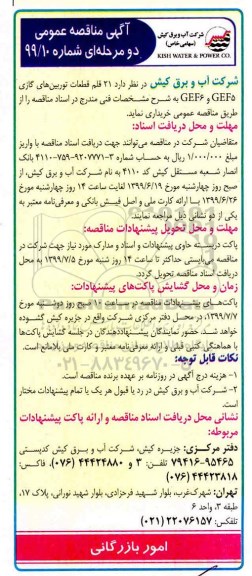 شرکت آب و برق کیش
(سهامی خاص)
KISH WATER & POWER CO.
آگهی مناقصه عمومی
دو مرحله‌ای شماره ۹۹/۱۰
شرکت آب و برق کیش در نظر دارد ۲۱ قلم قطعات توربین‌های گازی
GEF۵ و GEF۶ به شرح مشخصات فنی مندرج در اسناد مناقصه را از
طریق مناقصه عمومی خریداری نماید.
مهلت و محل دریافت اسناد:
متقاضیان شرکت در مناقصه می‌توانند جهت دریافت اسناد مناقصه با واریز
مبلغ ۱/۰۰۰/۰۰۰ ریال به حساب شماره ۳-۹۲۰۷۷۷۱-۷۵۹-۴۱۱۰ بانک
انصار شعبه مستقل کیش کد ۴۱۱۰ به نام شرکت آب و برق کیش، از
صبح روز چهارشنبه مورخ ۱۳۹۹/۶/۱۹ لغایت ساعت ۱۴ روز چهارشنبه مورخ
۱۳۹۹/۶/۲۶ با ارائه کارت ملی و اصل فیش بانکی و معرفی‌نامه معتبر به
یکی از دو نشانی ذیل مراجعه نمایند.
مهلت و محل تحویل پیشنهادات مناقصه:
پاکت دربسته حاوی پیشنهادات و اسناد و مدارک مورد نیاز جهت شرکت در
مناقصه می‌بایستی حداکثر تا ساعت ۱۴ روز شنبه مورخ ۱۳۹۹/۷/۵ به محل
دریافت اسناد مناقصه تحویل گردد.
زمان و محل گشایش پاکت‌های پیشنهادات:
پاکت‌های پیشنهادات مناقصه در ساعت صبح روز دوشنبه مورخ
۱۳۹۹/۷/۷، در محل دفتر مرکزی شرکت واقع در جزیره کیش گشوده
خواهد شد. حضور نمایندگان پیشنهاددهندگان در جلسه گشایش پاکت‌ها
با هماهنگی کتبی قبلی و ارائه معرفی‌نامه معتبر و کارت ملی بلامانع است.
نکات قابل توجه:
۱- هزینه درج آگهی در روزنامه بر عهده برنده مناقصه است.
۲- شرکت آب و برق کیش در رد یا قبول هر یک یا تمام پیشنهادات مختار
است.
نشانی محل دریافت اسناد مناقصه و ارائه پاکت پیشنهادات
مربوطه:
دفتر مرکزی: جزیره کیش، شرکت آب و برق کیش کدپستی
۷۹۴۱۶-۹۵۴۶۵ تلفن: ۳ و ۴۴۴۲۴۸۸۰ (۰۷۶)، فاکس:
۴۴۴۲۳۸۱۸ (۰۷۶)
تهران: شهرک‌غرب، بلوار شهید فرحزادی، بلوار شهید نورانی، پلاک ۱۷،
طبقه ۳، واحد ۶
تلفکس: ۲۲۰۷۶۱۵۷ (۰۲۱)
امور بازرگانی